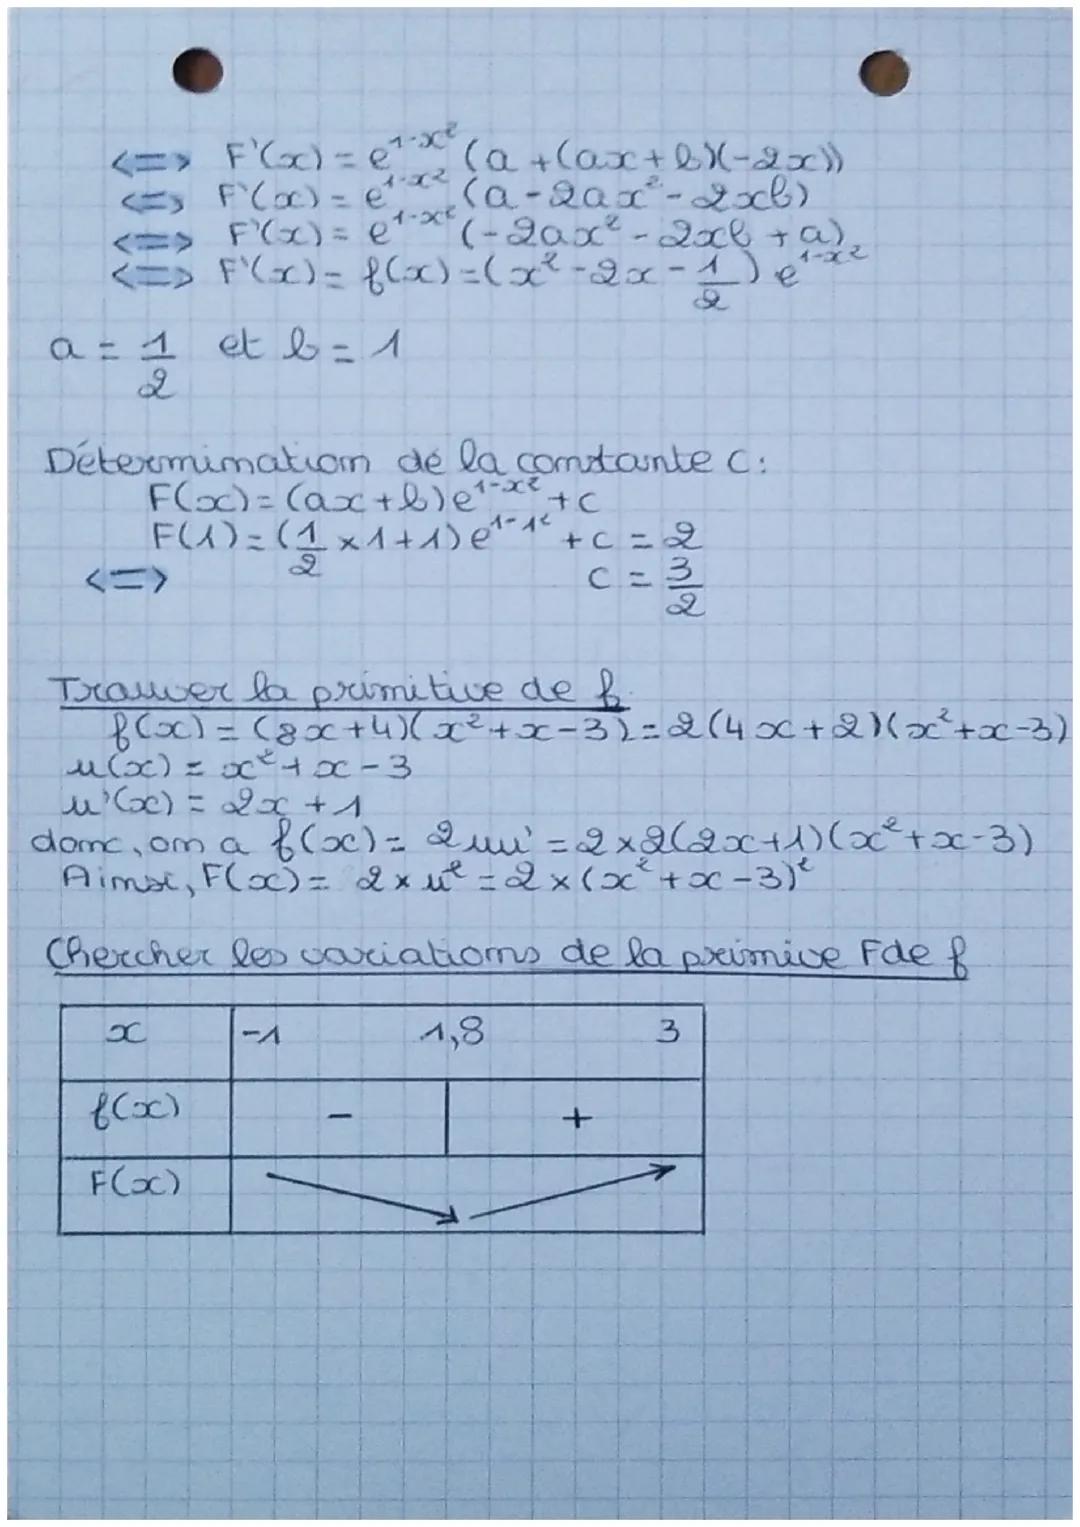 <=> F'(x) = e^{1-x²} (a + (ax + b)(-2x))
<=> F'(x) = e^{1-x²} (a - 2ax² - 2xb)
<=> F'(x) = e^{1-x²} (-2ax² - 2xb + a)
<=> F'(x) = f(x) = (x² - 2x - 1/2) e^{1-x²}
a = 1/2 et b = 1
Détermination de la constante C :
F(x) = (ax + b) e^{1-x²} + c
F(1) = (1/2 × 1 + 1) e^{1-1²} + c = 2
<=> C = 3/2
Trouver la primitive de f
f(x) = (8x + 4)(x² + x - 3) = 2(4x + 2)(x² + x - 3)
u(x) = x² + x - 3
u'(x) = 2x + 1
donc, on a f(x) = 2uu' = 2 × 2(2x + 1)(x² + x - 3)
Ainsi, F(x) = 2 × u² = 2 × (x² + x - 3)²
Chercher les variations de la primive F de f
x -1 1,8 3
f(x) - +
F(x)